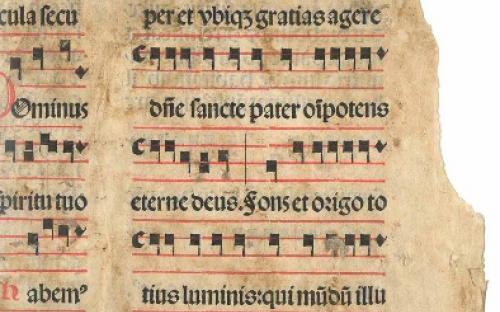 cula secu
Ominus
spiritu tuo
habemꝰ
per et vbiqꝫ gratias agere
dn̄e sancte pater oīpotens
eterne deus. Fons et origo to
tius luminis: qui mūdū illu